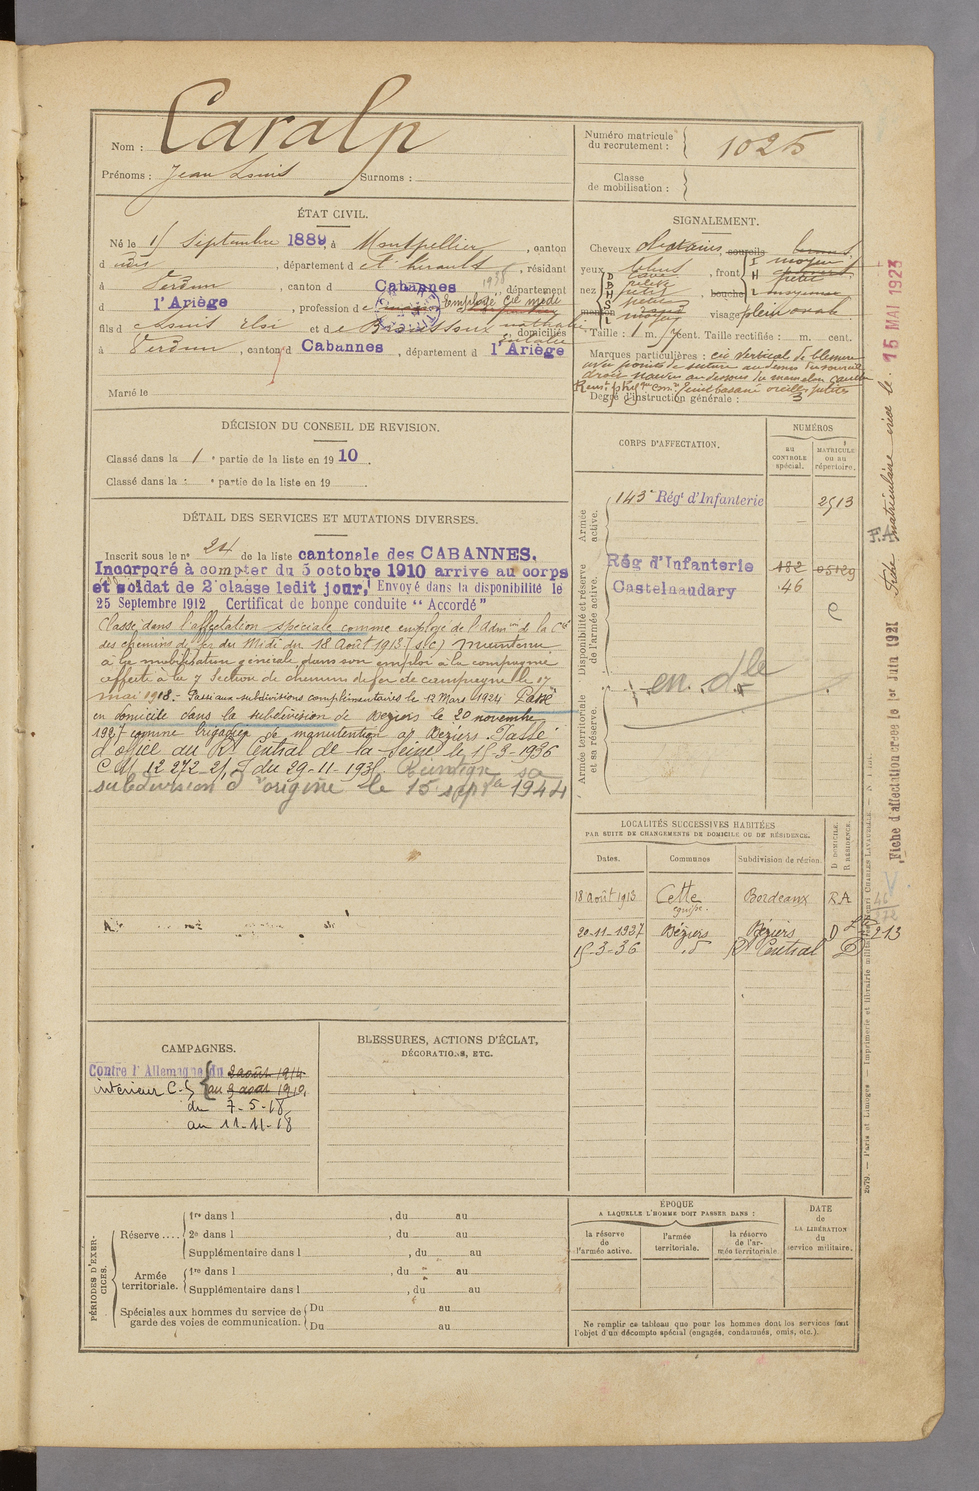 Nom : Caralp
Prénoms : Jean Louis Surnoms :
Numéro matricule du recrutement : 1025
Classe de mobilisation :
ÉTAT CIVIL.
Né le 1 Septembre 1889 à Montpellier, canton
d dudit, département d e l'Hérault, résidant
à Verdun, canton d Cabannes, département
d l'Ariège, profession de Employé Cie Midi
fils d e Louis et d e domiciliés
à Verdun, canton d Cabannes, département d l'Ariège
Marié le
SIGNALEMENT.
Cheveux châtains, sourcils
yeux bleus, front moyen
nez, bouche moyenne
menton visage plein ovale
Taille : 1 m. cent. Taille rectifiée : m. cent.
Marques particulières : cic vertical de blessure
avec points de suture au dessus du sourcil
droit
Degré d'instruction générale : 3
DÉCISION DU CONSEIL DE REVISION.
Classé dans la 1 e partie de la liste en 1910.
Classé dans la e partie de la liste en 19
DÉTAIL DES SERVICES ET MUTATIONS DIVERSES.
Inscrit sous le no 24 de la liste cantonale des CABANNES.
Incorporé à compter du 5 octobre 1910 arrive au corps
et soldat de 2e classe ledit jour, Envoyé dans la disponibilité le
25 Septembre 1912 Certificat de bonne conduite "Accordé"
Classé dans l'affectation spéciale comme employé de l'Admon de la Cie
des chemins de fer du Midi du 18 Août 1913 (S/C) Maintenu
à la mobilisation générale dans son emploi à la compagnie
affecté à la 7 Section de chemins de fer de campagne le 17
mai 1918.- Passé aux subdivisions complémentaires le 12 Mars 1924 Passé
en domicile dans la subdivision de Béziers le 20 novembre
1927 comme brigadier de manutention à Béziers. Passé
d'office au Rt Central de la Seine le 15-3-1936
C M 12 272-21 du 29-11-1935 Réintègre sa
subdivision d'origine le 15 sept 1944
CORPS D'AFFECTATION.
NUMÉROS
au CONTROLE spécial.
MATRICULE ou au répertoire.
Armée active.
143e Régt d'Infanterie 2513
Disponibilité et réserve de l'armée active.
Rég d'Infanterie 182
Castelnaudary 46
Armée territoriale et sa réserve.
en dle
LOCALITÉS SUCCESSIVES HABITÉES
PAR SUITE DE CHANGEMENTS DE DOMICILE OU DE RÉSIDENCE.
Dates. Communes Subdivision de région. D. DOMICILE. R. RÉSIDENCE.
18 août 1913 Cette Bordeaux RA
20-11-1937 Béziers Béziers D
15-3-36 d Rt Central D
213
CAMPAGNES.
Contre l'Allemagne du 2 août 1914
intérieur C.S au
du 7-5-18
au 11-11-18
BLESSURES, ACTIONS D'ÉCLAT, DÉCORATIONS, ETC.
PÉRIODES D'EXERCICES.
Réserve .... 1re dans l , du au
2e dans l , du au
Supplémentaire dans l , du au
Armée territoriale. 1re dans l , du au
Supplémentaire dans l , du au
Spéciales aux hommes du service de garde des voies de communication. Du au
Du au
ÉPOQUE
A LAQUELLE L'HOMME DOIT PASSER DANS :
la réserve de l'armée active.
l'armée territoriale.
la réserve de l'armée territoriale
DATE de LA LIBÉRATION du service militaire.
Ne remplir ce tableau que pour les hommes dont les services font
l'objet d'un décompte spécial (engagés, condamnés, omis, etc.).
Fiche matriculaire créée le 15 MAI 1923
Fiche d'affectation créée le 1er Juin 1921
2579. — Paris et Limoges. — Imprimerie et librairie militaires Henri CHARLES-LAVAUZELLE.